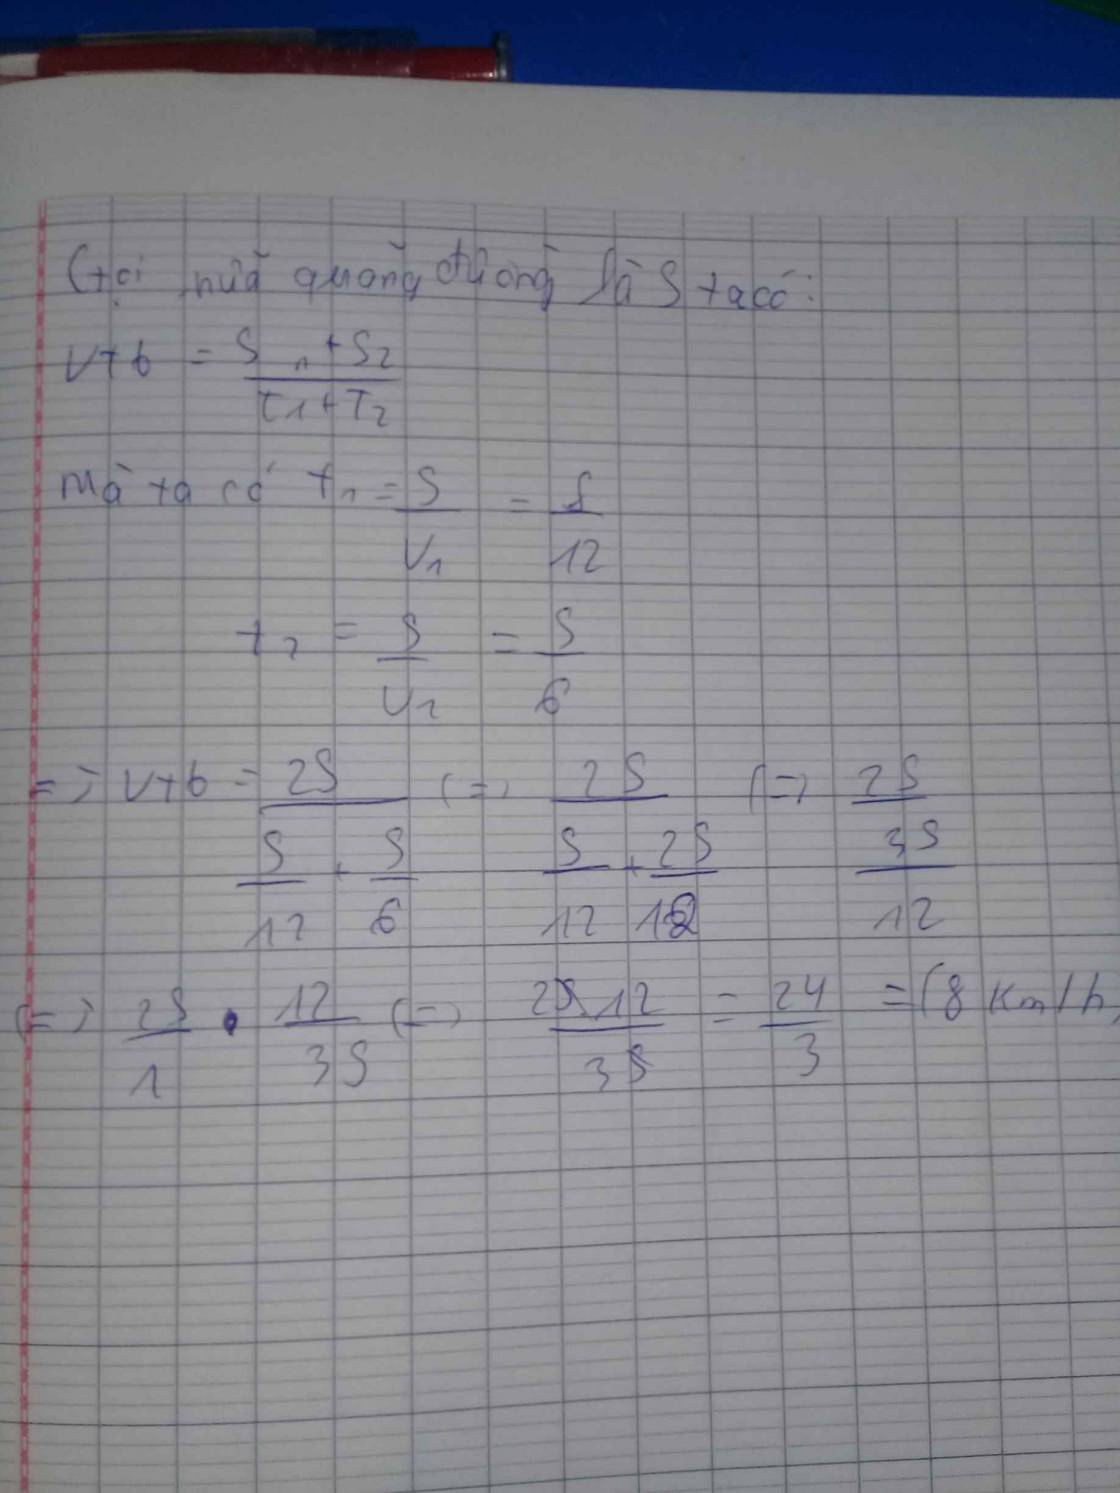 Gọi nữa quãng đường là S ta có:
vtb = S1+S2 / T1+T2
Mà ta có t1 = S/V1 = S/12
t2 = S/V2 = S/6
=> vtb = 2S / (S/12 + S/6) (=) 2S / (S/12 + 2S/12) (=) 2S / (3S/12)
(=) 2S/1 . 12/3S (=) 2S.12/3S = 24/3 = (8 Km/h)